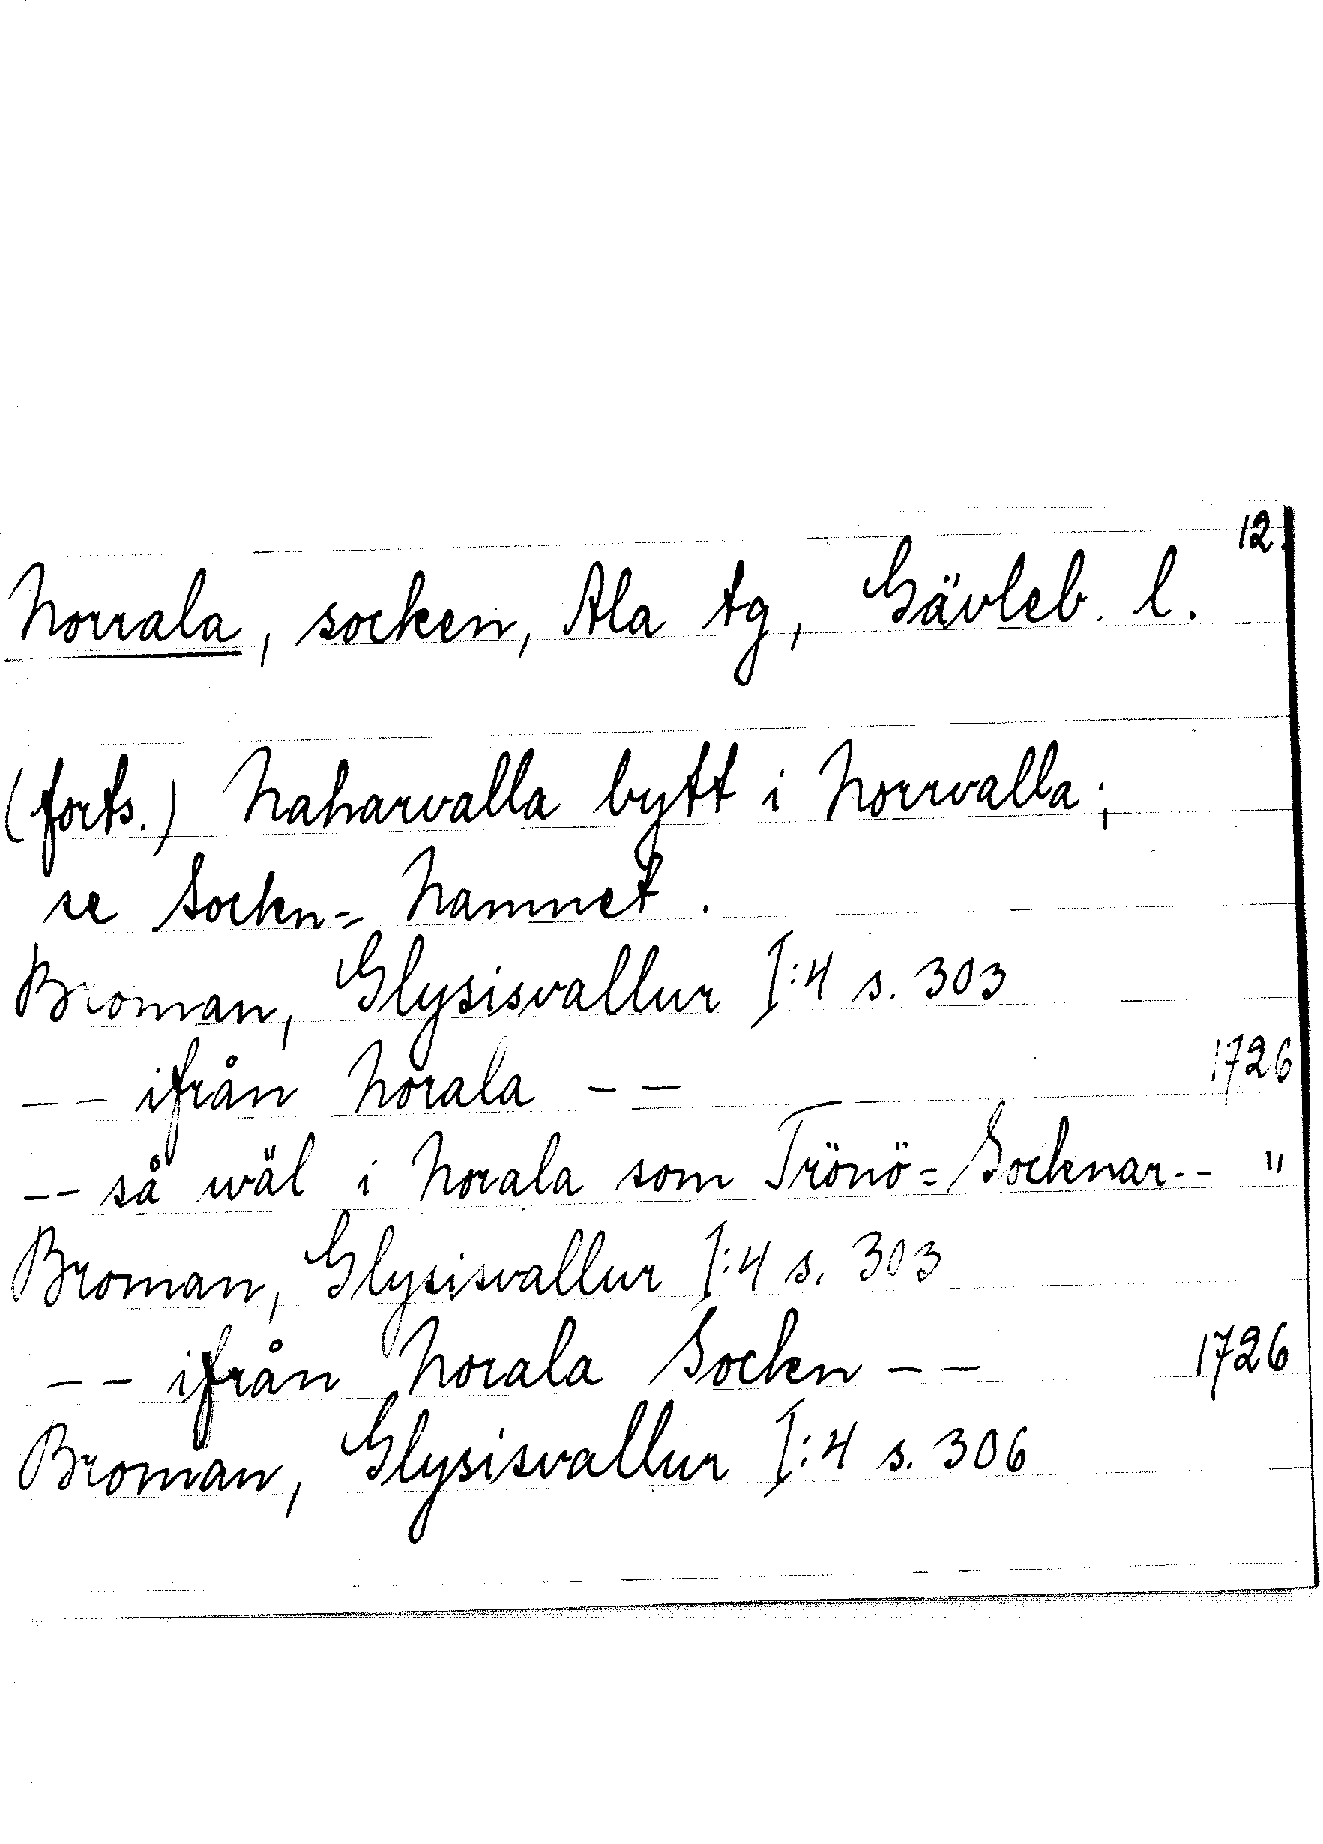 12.
Norrala, socken, Ala tg, Gävleb. l.
(forts.) Naharvalla bytt i Norrvalla;
se Sockn= Namnet.
Broman, Glysisvallur I:4 s. 303
-- ifrån Norala -- 1726
-- så wäl i Norala som Trönö=Socknar-- "
Broman, Glysisvallur I:4 s. 303
-- ifrån Norala Sockn -- 1726
Broman, Glysisvallur I:4 s. 306